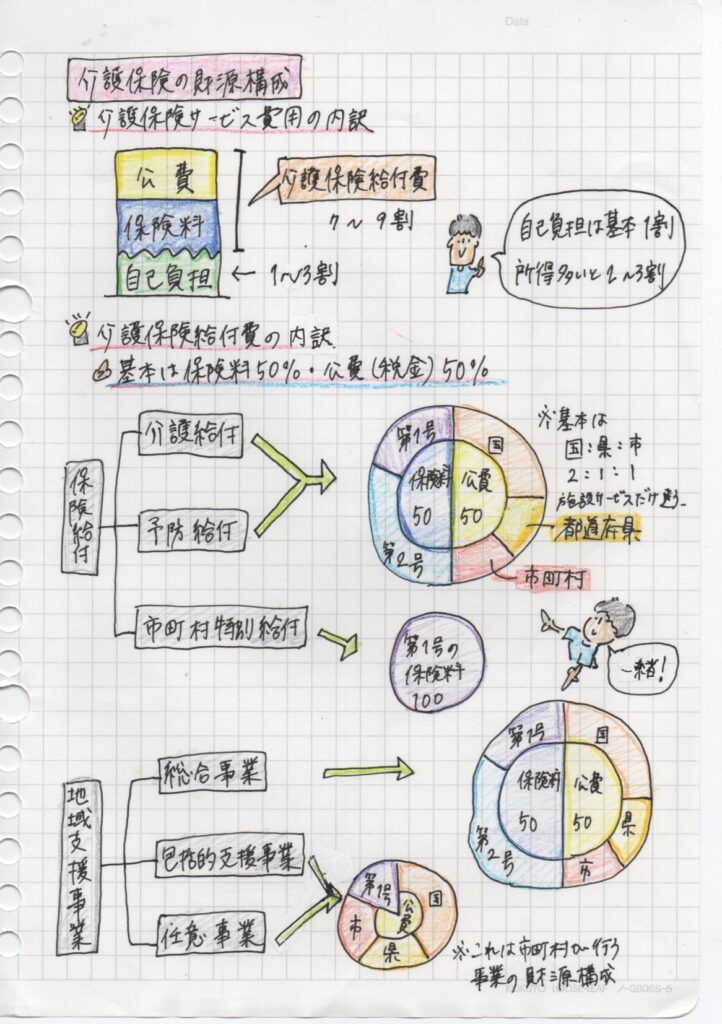 Date
介護保険の財源構成
介護保険サービス費用の内訳
公費
保険料
自己負担
介護保険給付費
7〜9割
← 1〜3割
自己負担は基本1割
所得多いと2〜3割
介護保険給付費の内訳
基本は保険料50%・公費(税金)50%
保険給付
介護給付
予防給付
市町村特別給付
第1号
国
保険料
50
公費
50
第2号
※基本は
国:県:市
2:1:1
施設サービスだけ違う
都道府県
市町村
第1号の
保険料
100
一緒!
地域支援事業
総合事業
包括的支援事業
任意事業
第1号
国
保険料
50
公費
50
第2号
県
市
第1号
国
公費
市
県
※これは市町村が行う
事業の財源構成
KOKUYO LOOSE-LEAF ノ-G806S-5